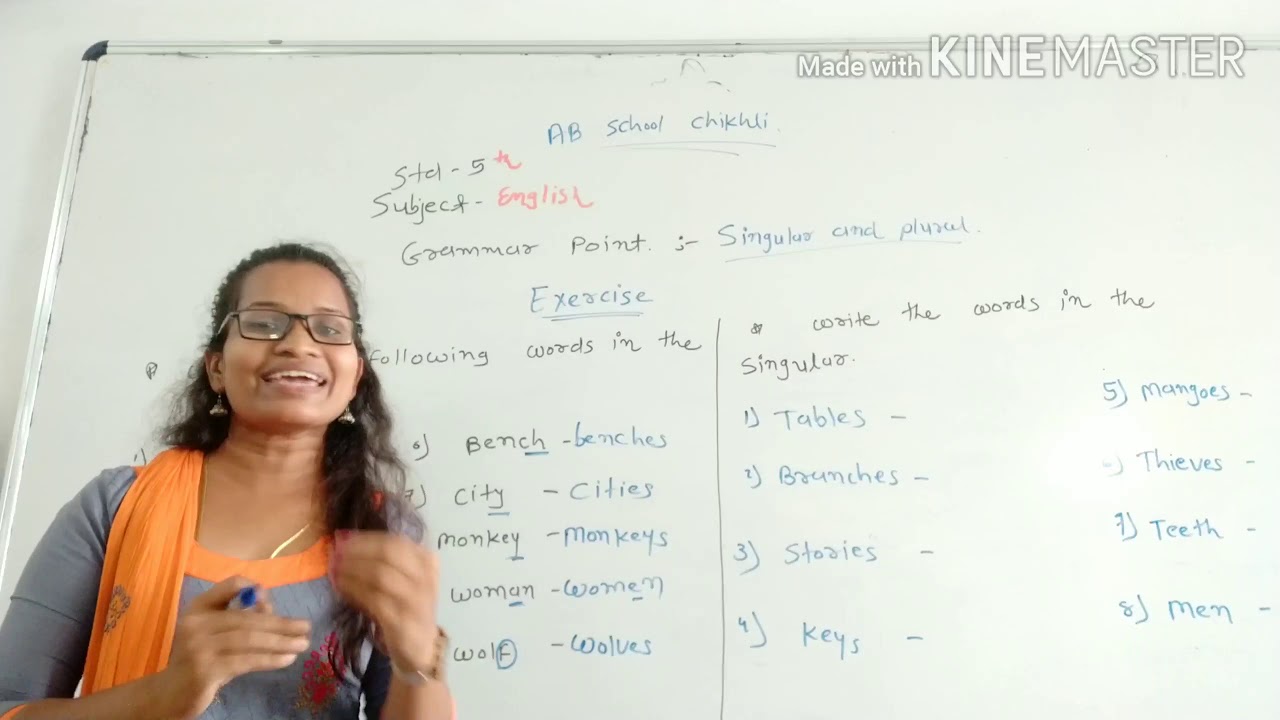 Made with KINEMASTER
AB School chikhli.
Std - 5th
Subject - English
Grammar Point :- Singular and plural.
Exercise
following words in the
6) Bench - benches
7) City - Cities
monkey - Monkeys
woman - women
wolf - wolves
* write the words in the
singular.
1) Tables -
2) Branches -
3) Stories -
4) Keys -
5) Mangoes -
6) Thieves -
7) Teeth -
8) Men -